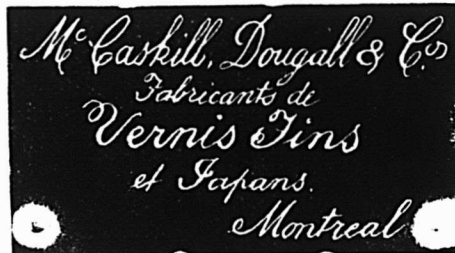 Mc Caskill, Dougall & Cos
Fabricants de
Vernis Fins
et Japans.
Montreal